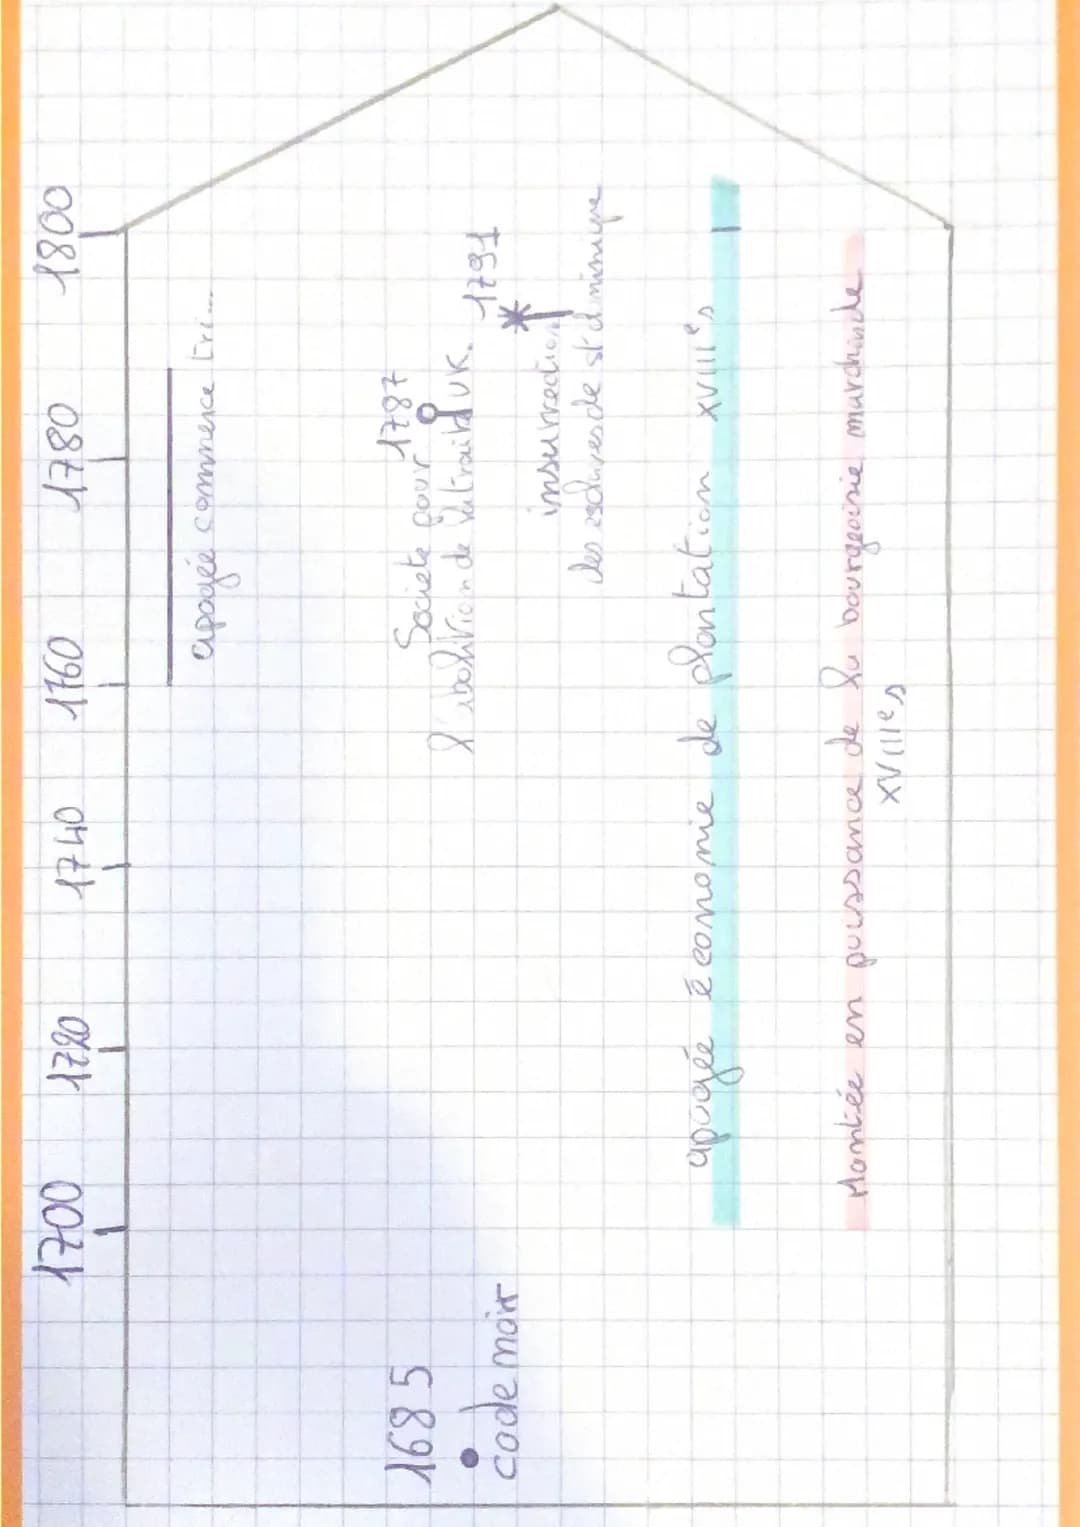 1700 1720 1740 1760 1780 1800
apogée commerce tri...
1685
code noir
1787
Societe pour
l'abolition de la traite UK.
1791
insurrection
des esclaves de st dminique
apogée économie de plantation XVIIIe s
Montée en puissance de la bourgeoisie marchande
XVIIIe s